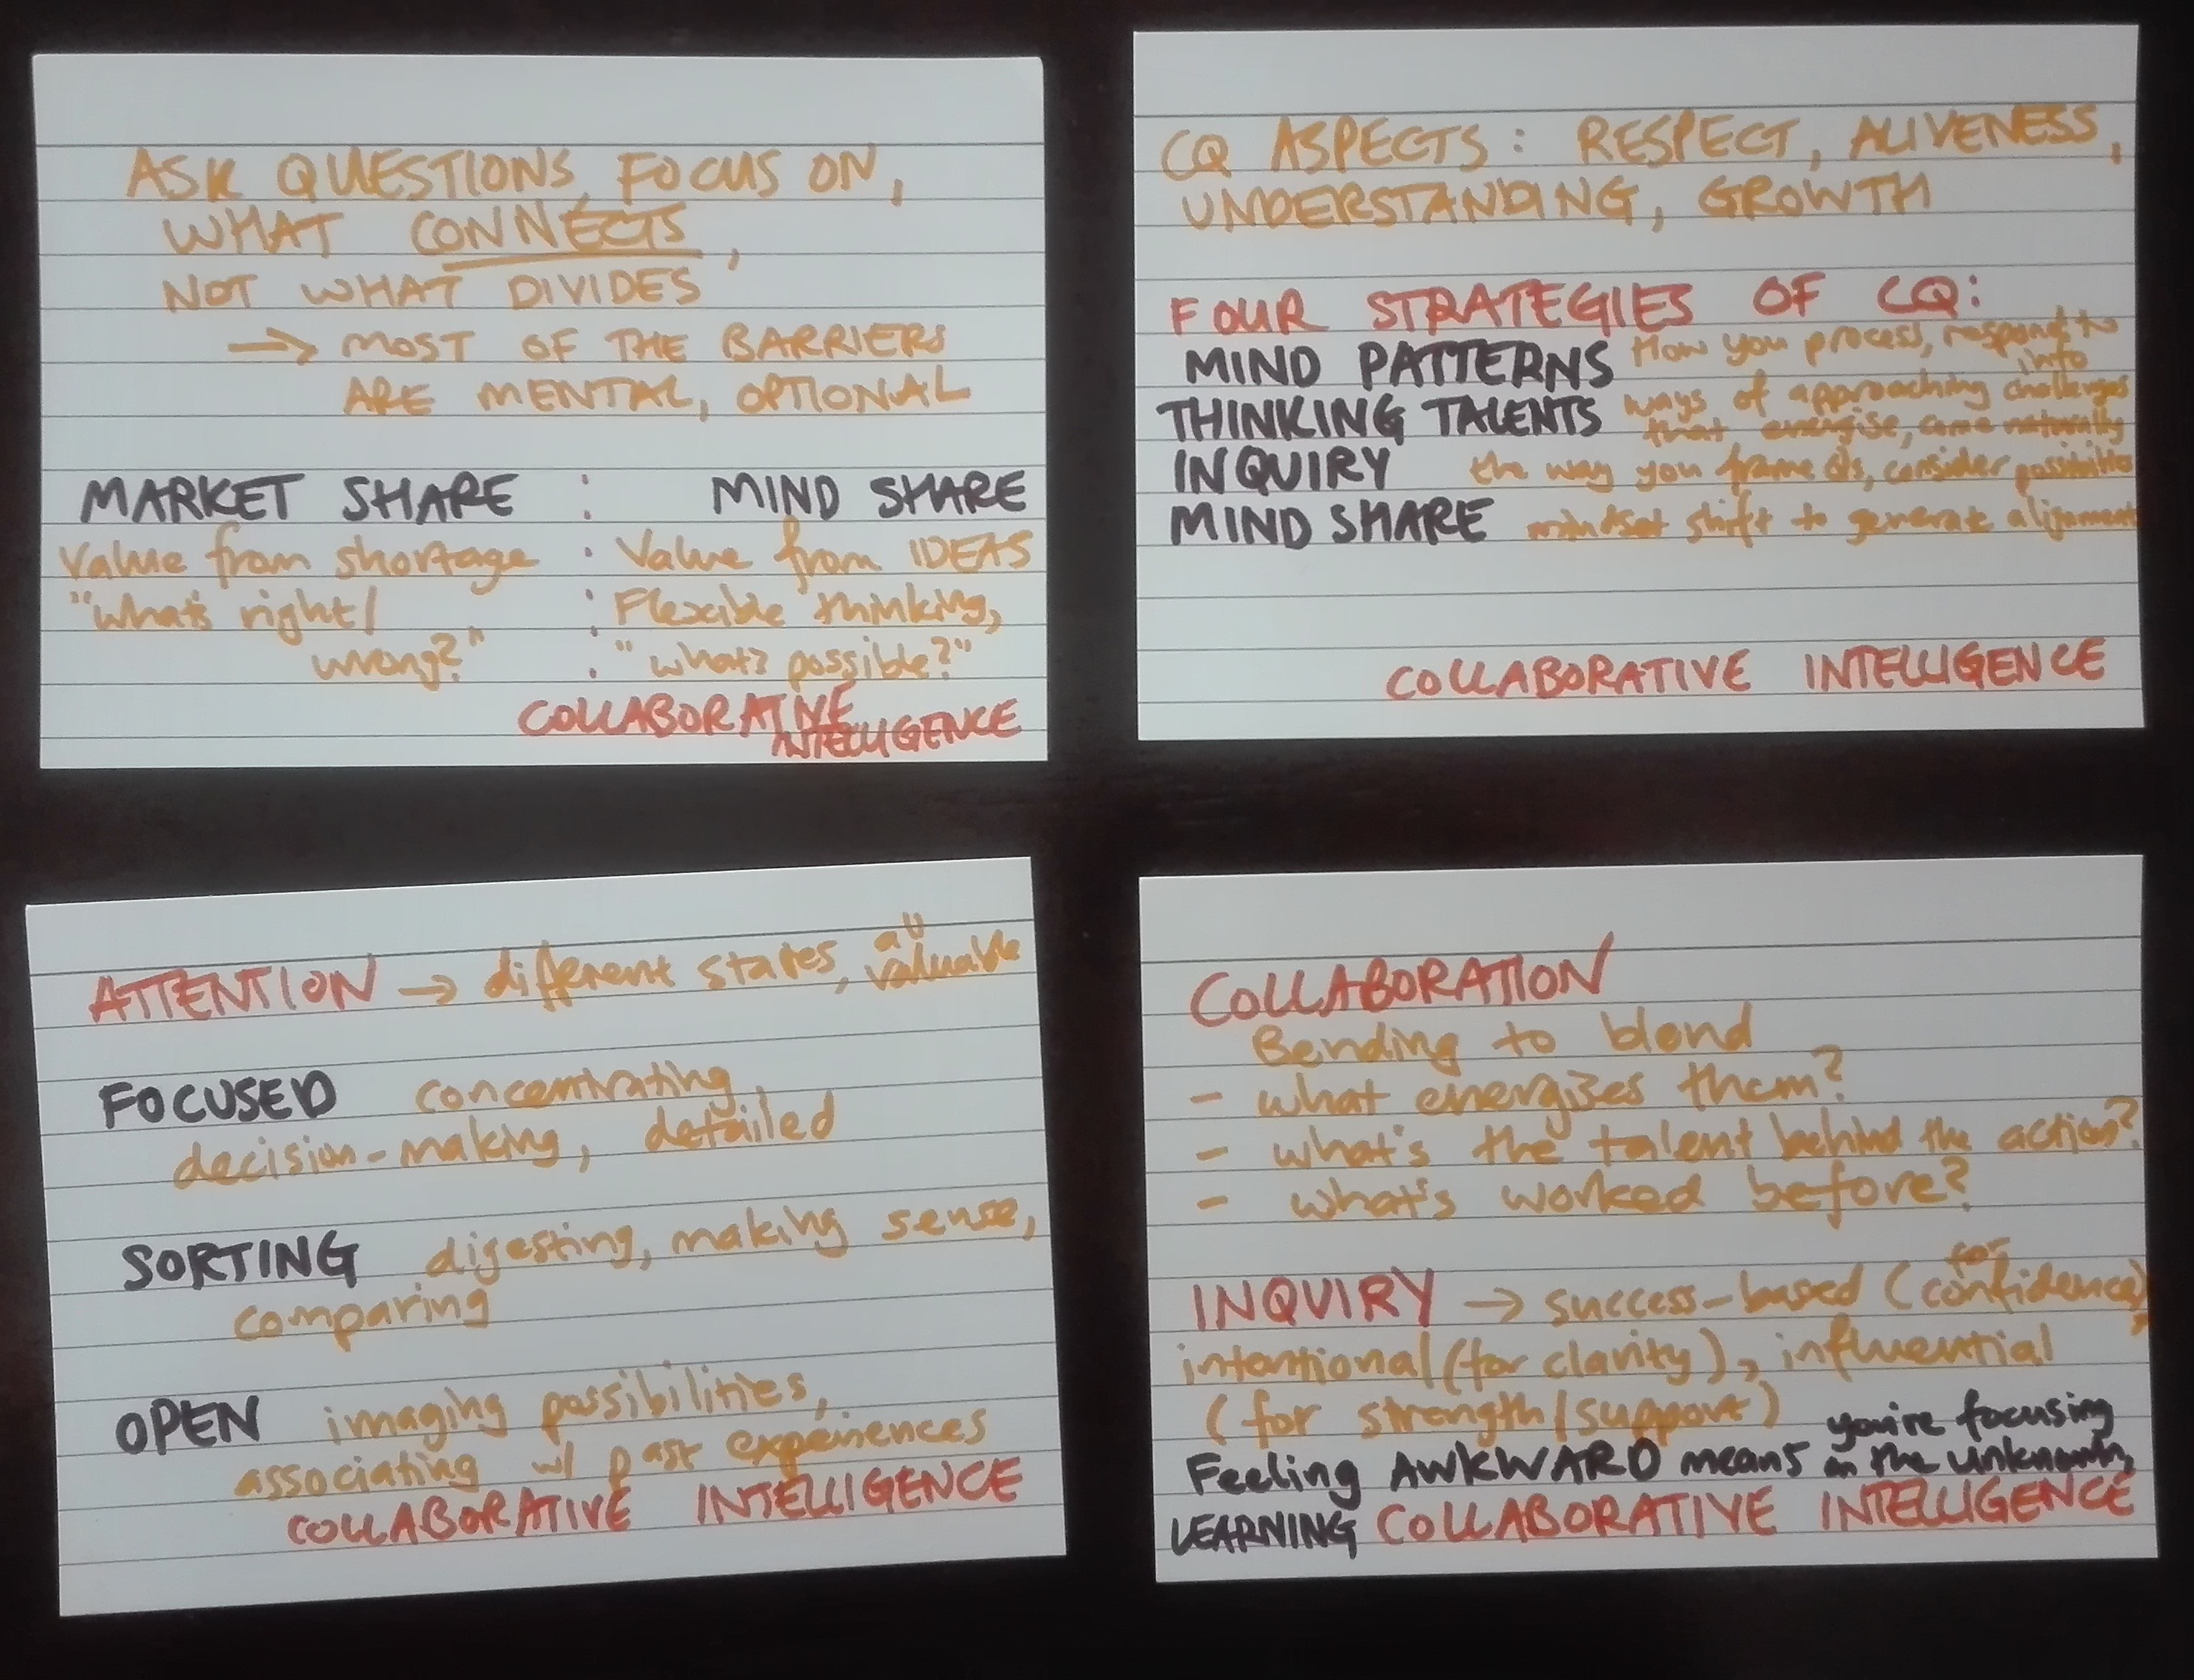 ASK QUESTIONS, FOCUS ON,
WHAT CONNECTS,
NOT WHAT DIVIDES
→ MOST OF THE BARRIERS
ARE MENTAL, OPTIONAL
MARKET SHARE : MIND SHARE
Value from shortage : Value from IDEAS
"what's right/ : Flexible thinking,
wrong?" : "what's possible?"
COLLABORATIVE
INTELLIGENCE
CQ ASPECTS: RESPECT, ALIVENESS,
UNDERSTANDING, GROWTH
FOUR STRATEGIES OF CQ:
MIND PATTERNS How you process, respond to
info
THINKING TALENTS ways of approaching challenges
that energise, come naturally
INQUIRY the way you frame Qs, consider possibilities
MIND SHARE mindset shift to generate alignment
COLLABORATIVE INTELLIGENCE
ATTENTION → different states, all valuable
FOCUSED concentrating,
decision-making, detailed
SORTING digesting, making sense,
comparing
OPEN imaging possibilities,
associating w/ past experiences
COLLABORATIVE INTELLIGENCE
COLLABORATION
Bending to blend
- what energizes them?
- what's the talent behind the action?
- what's worked before?
INQUIRY → success-based (for confidence),
intentional (for clarity), influential
(for strength/support)
Feeling AWKWARD means you're focusing
on the unknown,
LEARNING COLLABORATIVE INTELLIGENCE